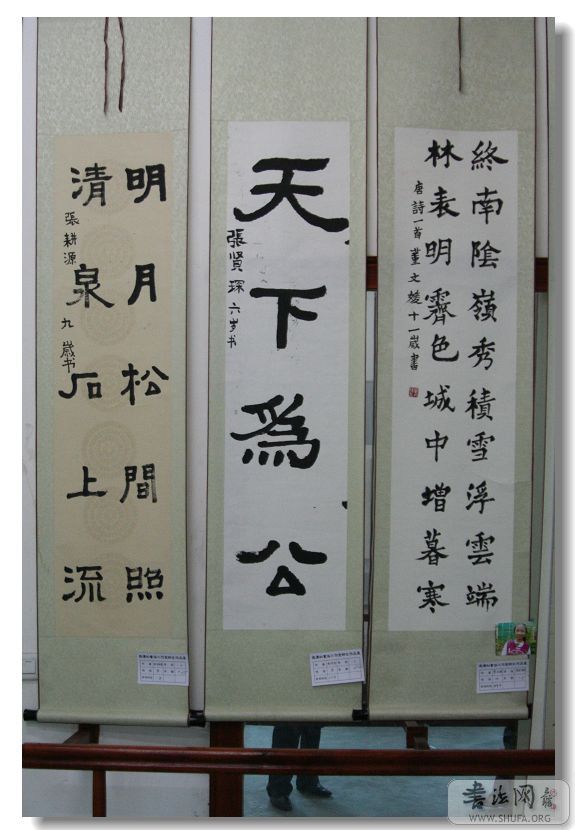 終南陰嶺秀積雪浮雲端
林表明霽色城中增暮寒
唐詩一首 董文媛 十一歲書
天下為公
張賢琛 六岁书
明月松間照
清泉石上流
張耕源 九歲书
書法网
WWW.SHUFA.ORG